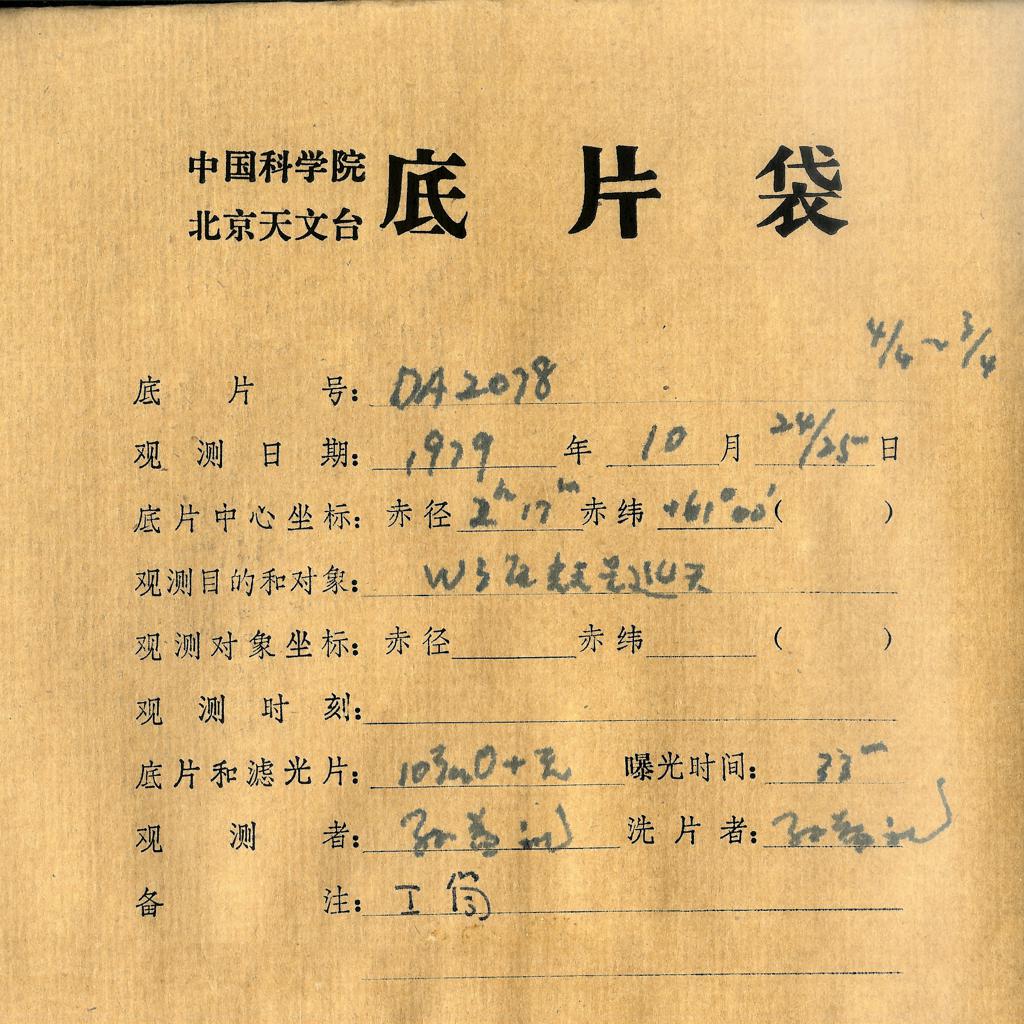 中国科学院
北京天文台
底片袋
4/4~3/4
底片号: DA2078
观测日期: 1979年10月24/25日
底片中心坐标: 赤径 2h17m 赤纬 +61°00′ ( )
观测目的和对象: W3
观测对象坐标: 赤径 赤纬 ( )
观测时刻:
底片和滤光片: 103aO+无 曝光时间: 33m
观测者: 孙
洗片者: 孙
备注: I筒